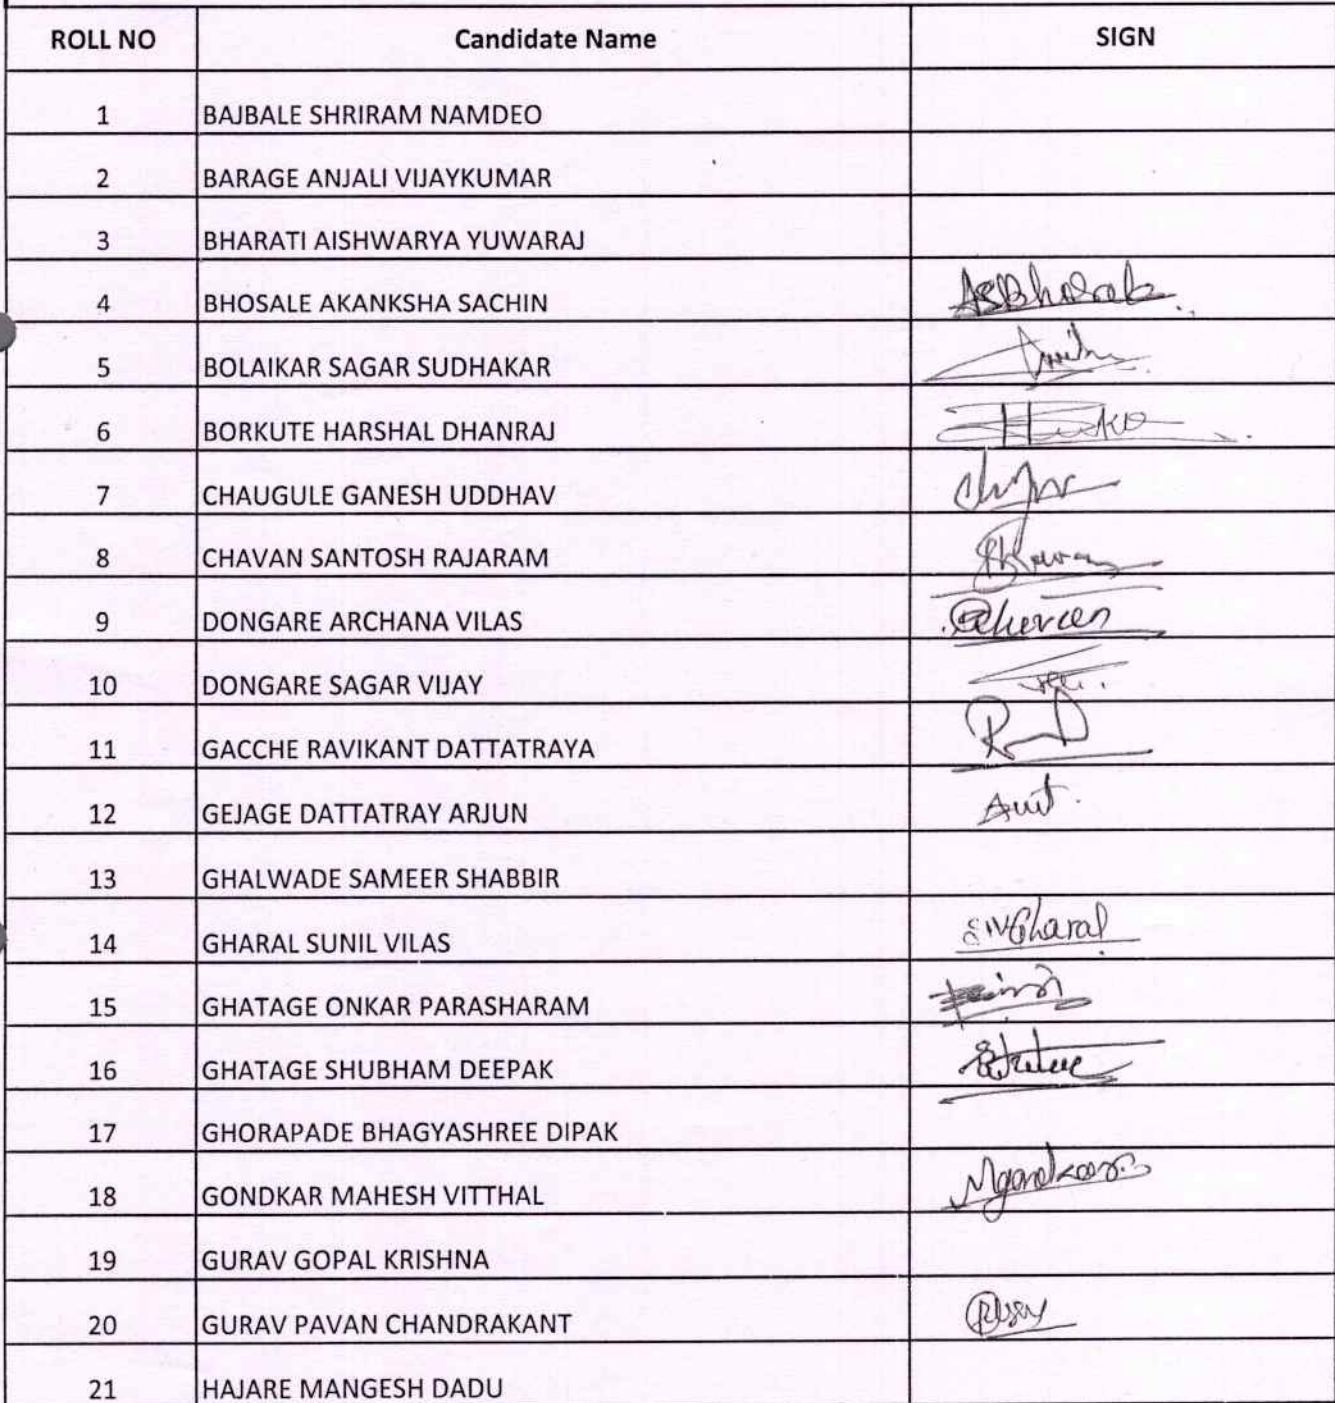 ROLL NO Candidate Name SIGN
1 BAJBALE SHRIRAM NAMDEO
2 BARAGE ANJALI VIJAYKUMAR
3 BHARATI AISHWARYA YUWARAJ
4 BHOSALE AKANKSHA SACHIN ASBhosale
5 BOLAIKAR SAGAR SUDHAKAR
6 BORKUTE HARSHAL DHANRAJ
7 CHAUGULE GANESH UDDHAV
8 CHAVAN SANTOSH RAJARAM
9 DONGARE ARCHANA VILAS
10 DONGARE SAGAR VIJAY
11 GACCHE RAVIKANT DATTATRAYA
12 GEJAGE DATTATRAY ARJUN
13 GHALWADE SAMEER SHABBIR
14 GHARAL SUNIL VILAS SVGharal
15 GHATAGE ONKAR PARASHARAM
16 GHATAGE SHUBHAM DEEPAK
17 GHORAPADE BHAGYASHREE DIPAK
18 GONDKAR MAHESH VITTHAL Mgondkar
19 GURAV GOPAL KRISHNA
20 GURAV PAVAN CHANDRAKANT
21 HAJARE MANGESH DADU